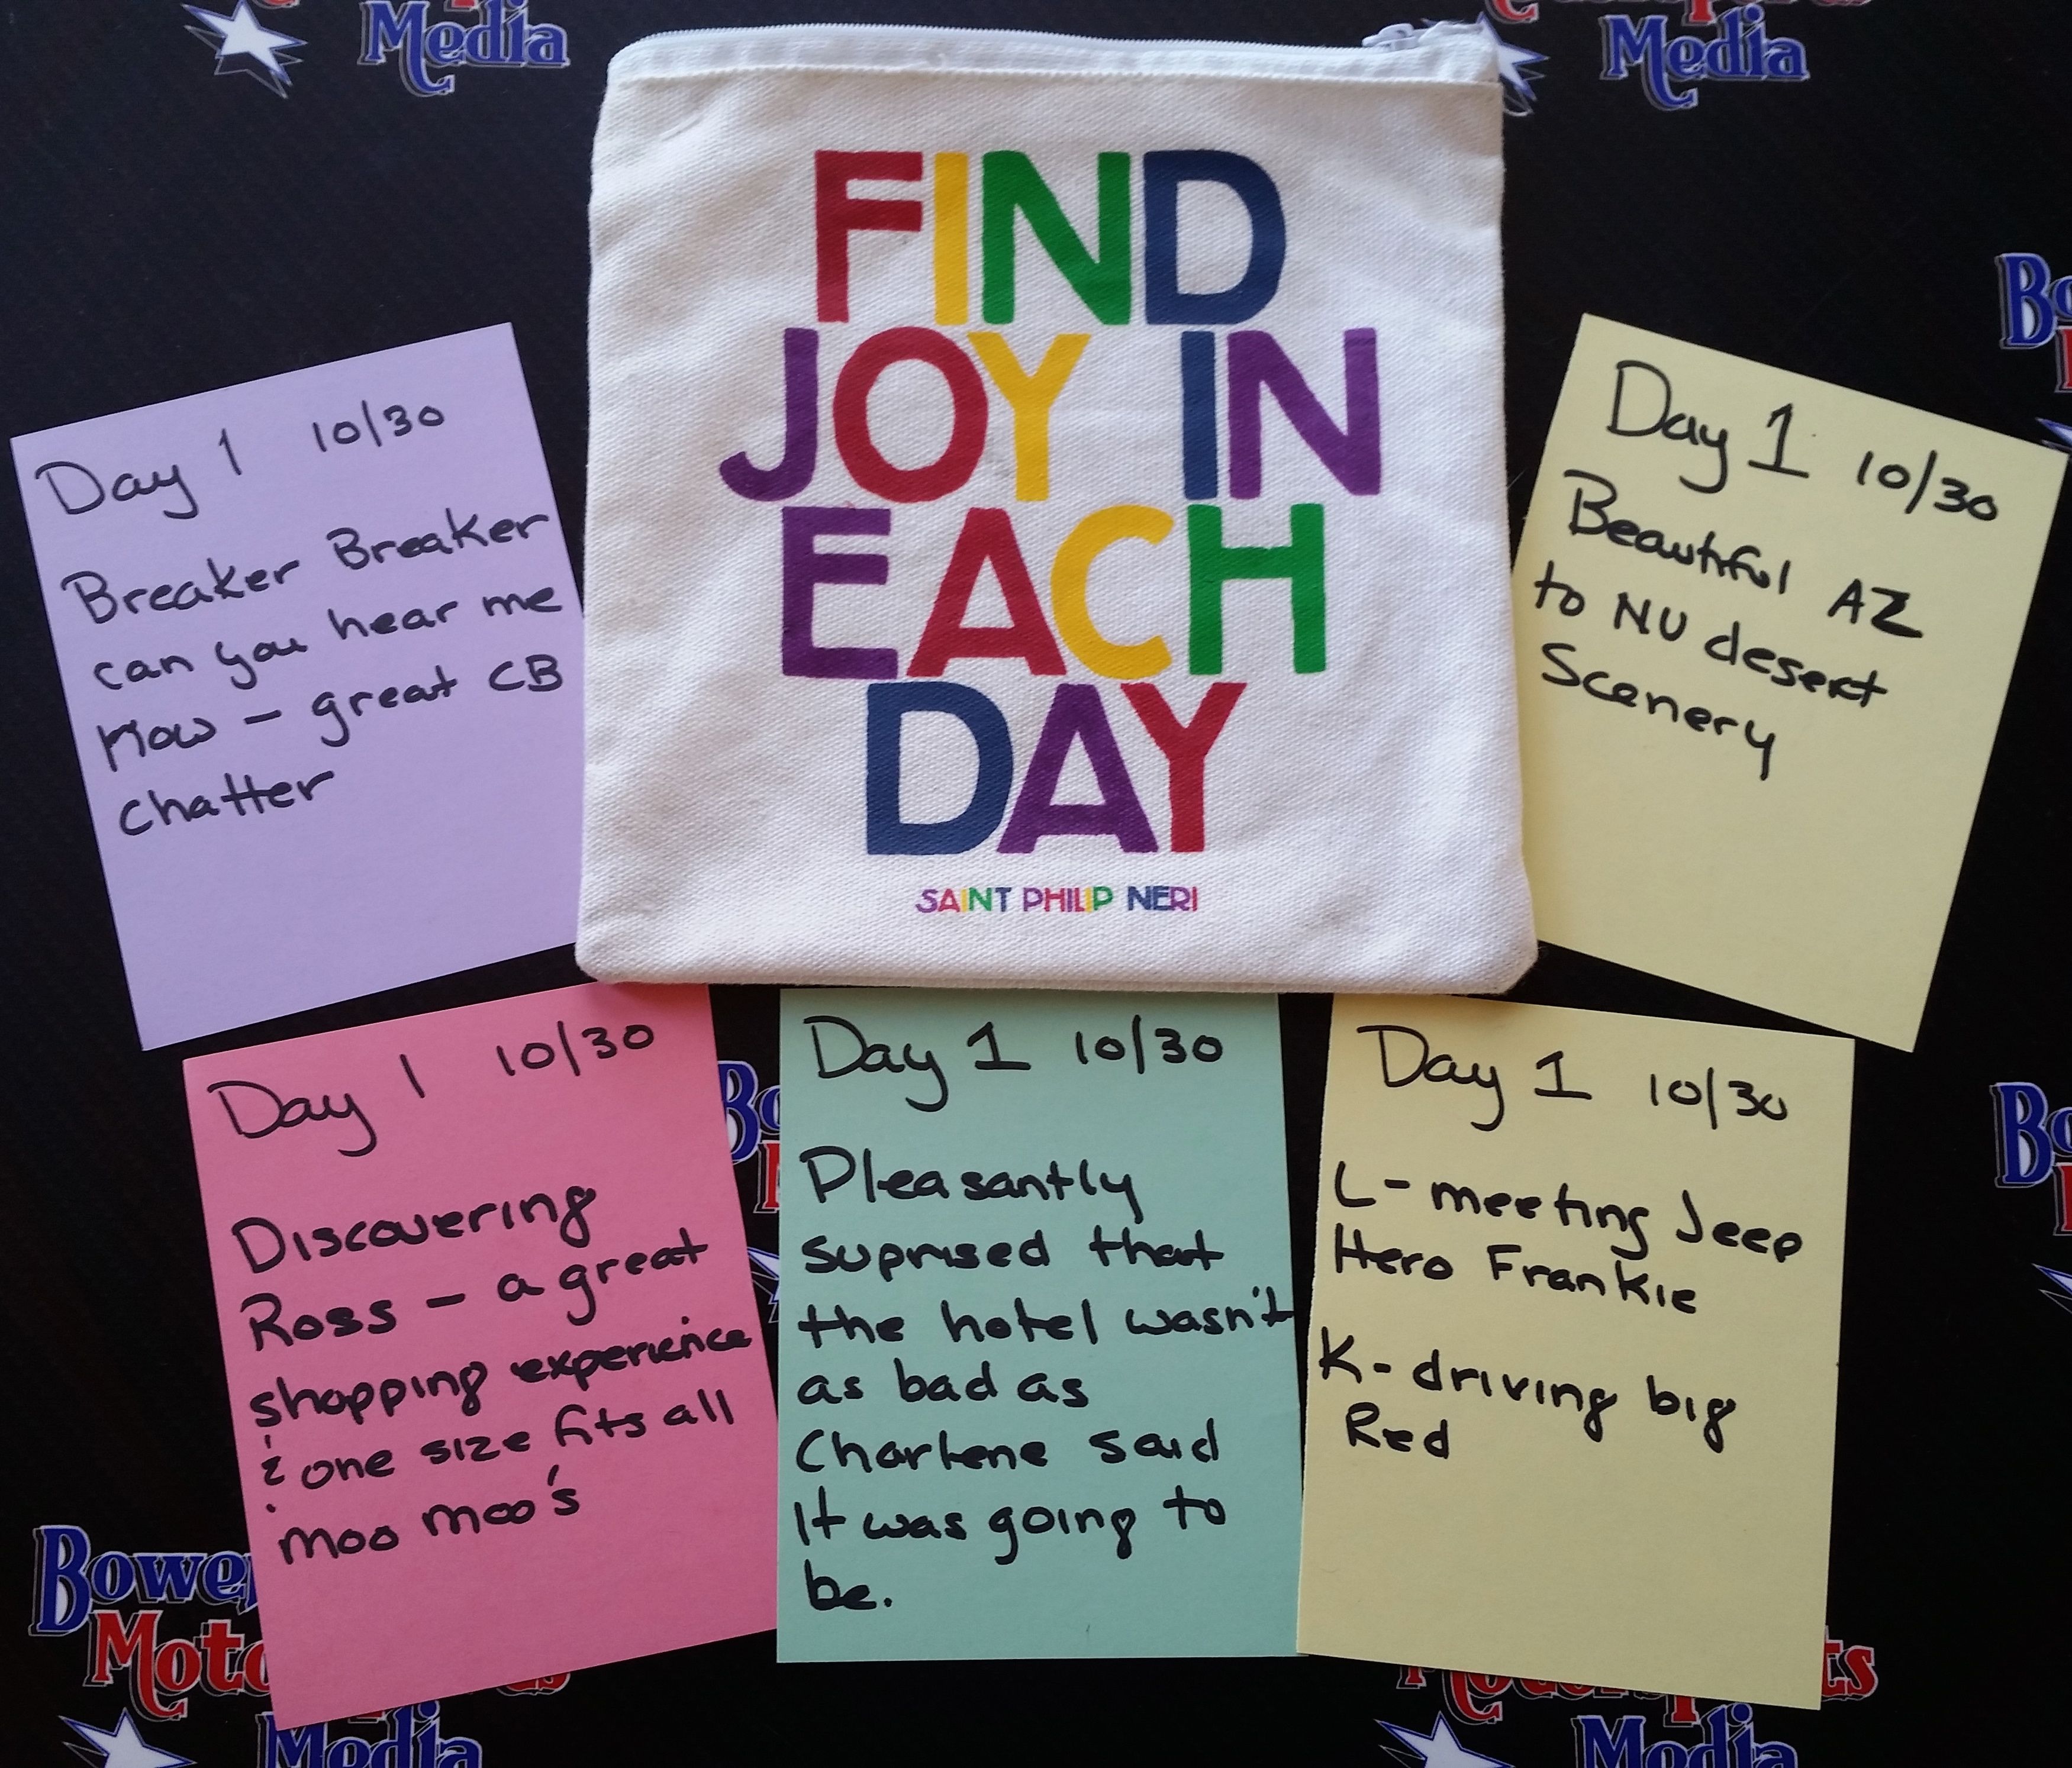 Media
Media
FIND
JOY IN
EACH
DAY
SAINT PHILIP NERI
Day 1 10/30
Breaker Breaker
can you hear me
now - great CB
chatter
Day 1 10/30
Beautiful AZ
to NV desert
Scenery
Day 1 10/30
Discovering
Ross - a great
shopping experience
& one size fits all
moo moo's
Day 1 10/30
Pleasantly
suprised that
the hotel wasn't
as bad as
Charlene said
It was going to
be.
Day 1 10/30
L- meeting Jeep
Hero Frankie
K- driving big
Red
Bower
Moto
Media
Motorsports
Media